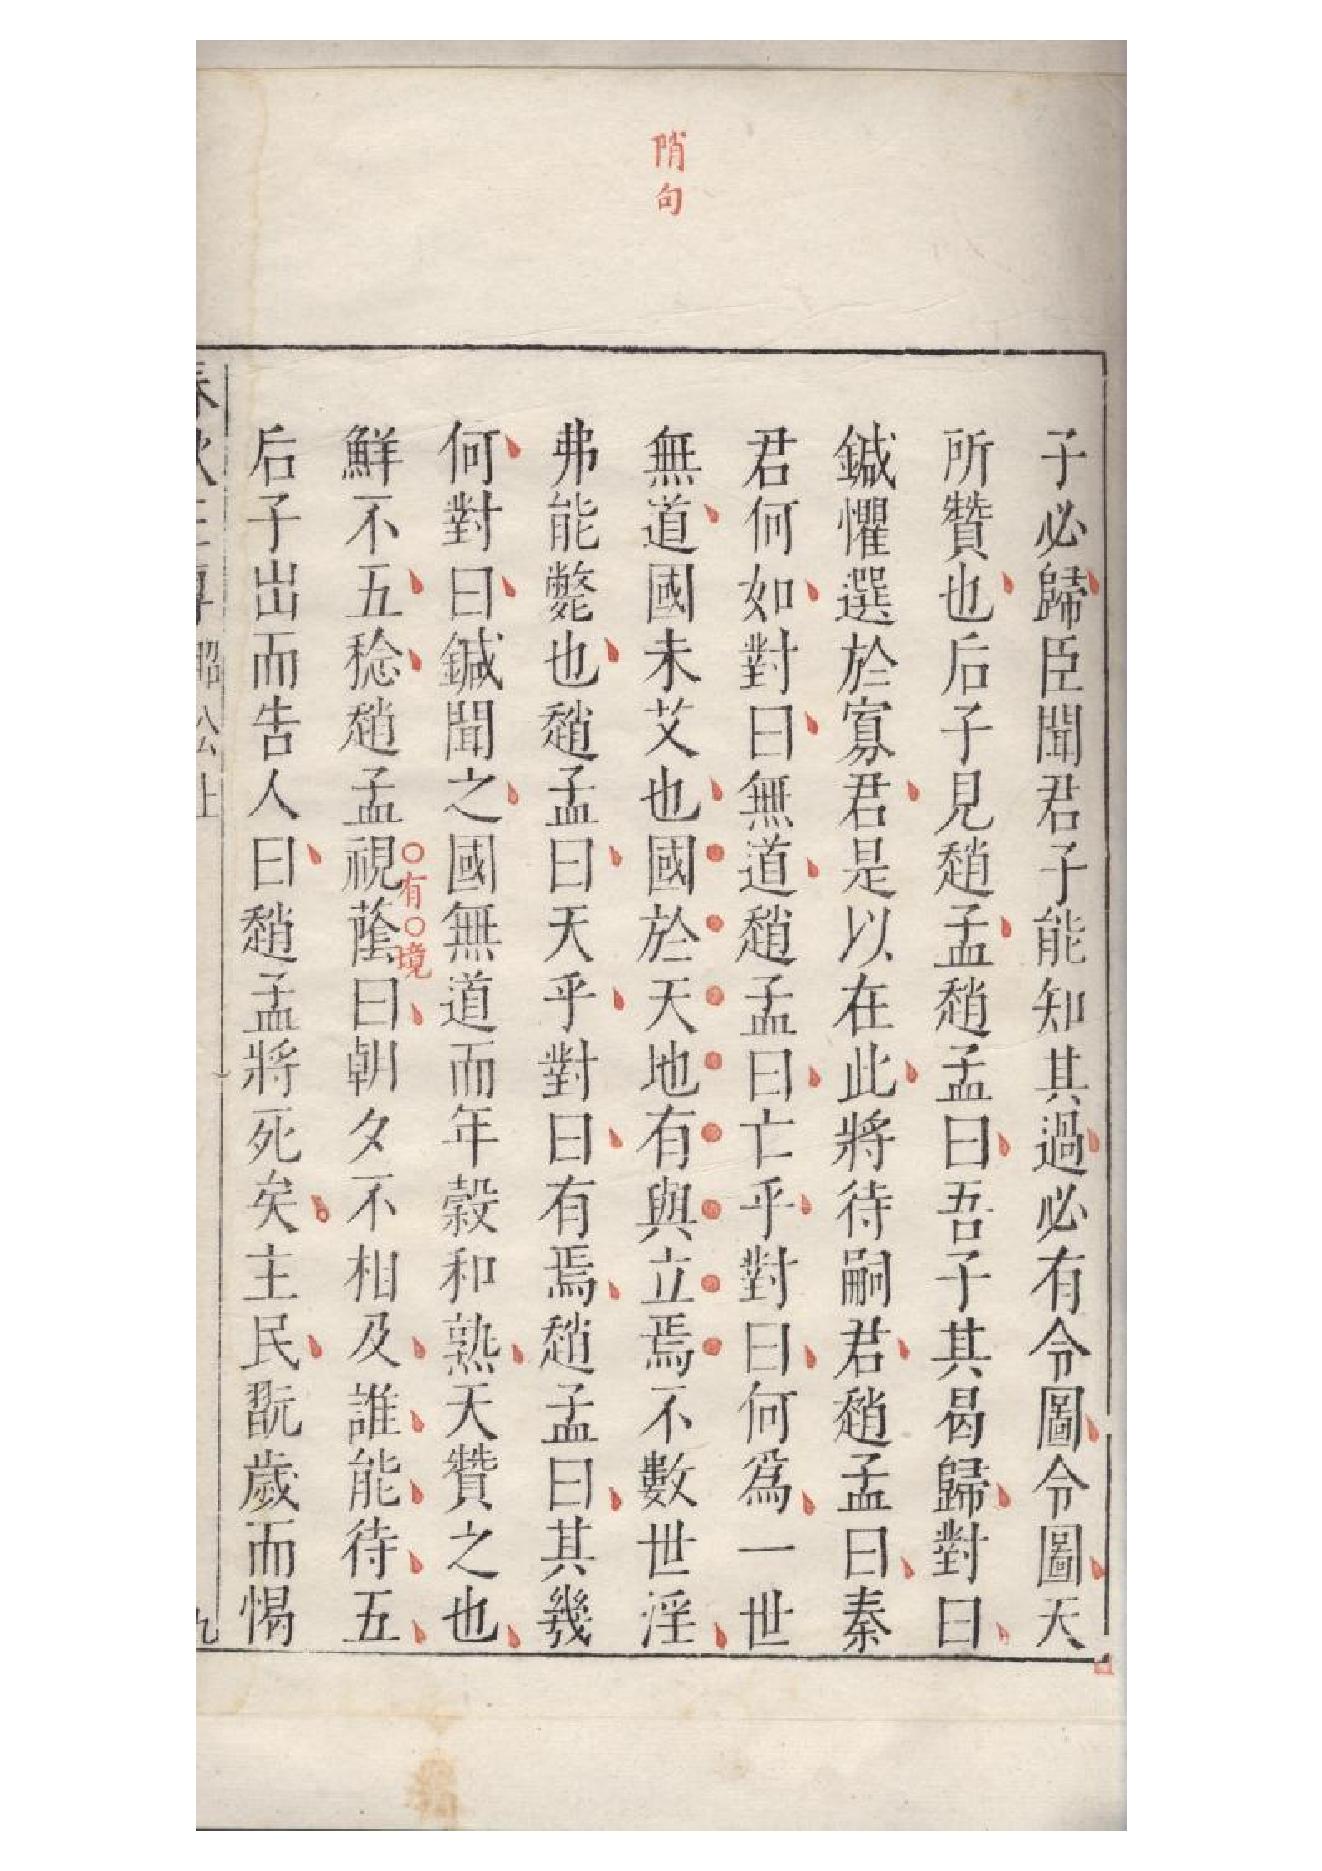 陗句
子必歸臣聞君子能知其過必有令圖令圖天
所贊也后子見趙孟趙孟曰吾子其曷歸對曰
鍼懼選於寡君是以在此將待嗣君趙孟曰秦
君何如對曰無道趙孟曰亡乎對曰何爲一世
無道國未艾也國於天地有與立焉不數世淫
弗能斃也趙孟曰天乎對曰有焉趙孟曰其幾
何對曰鍼聞之國無道而年穀和熟天贊之也
鮮不五稔趙孟視蔭曰朝夕不相及誰能待五
有境
后子出而告人曰趙孟將死矣主民翫歲而愒
春秋左傳 昭公上 九